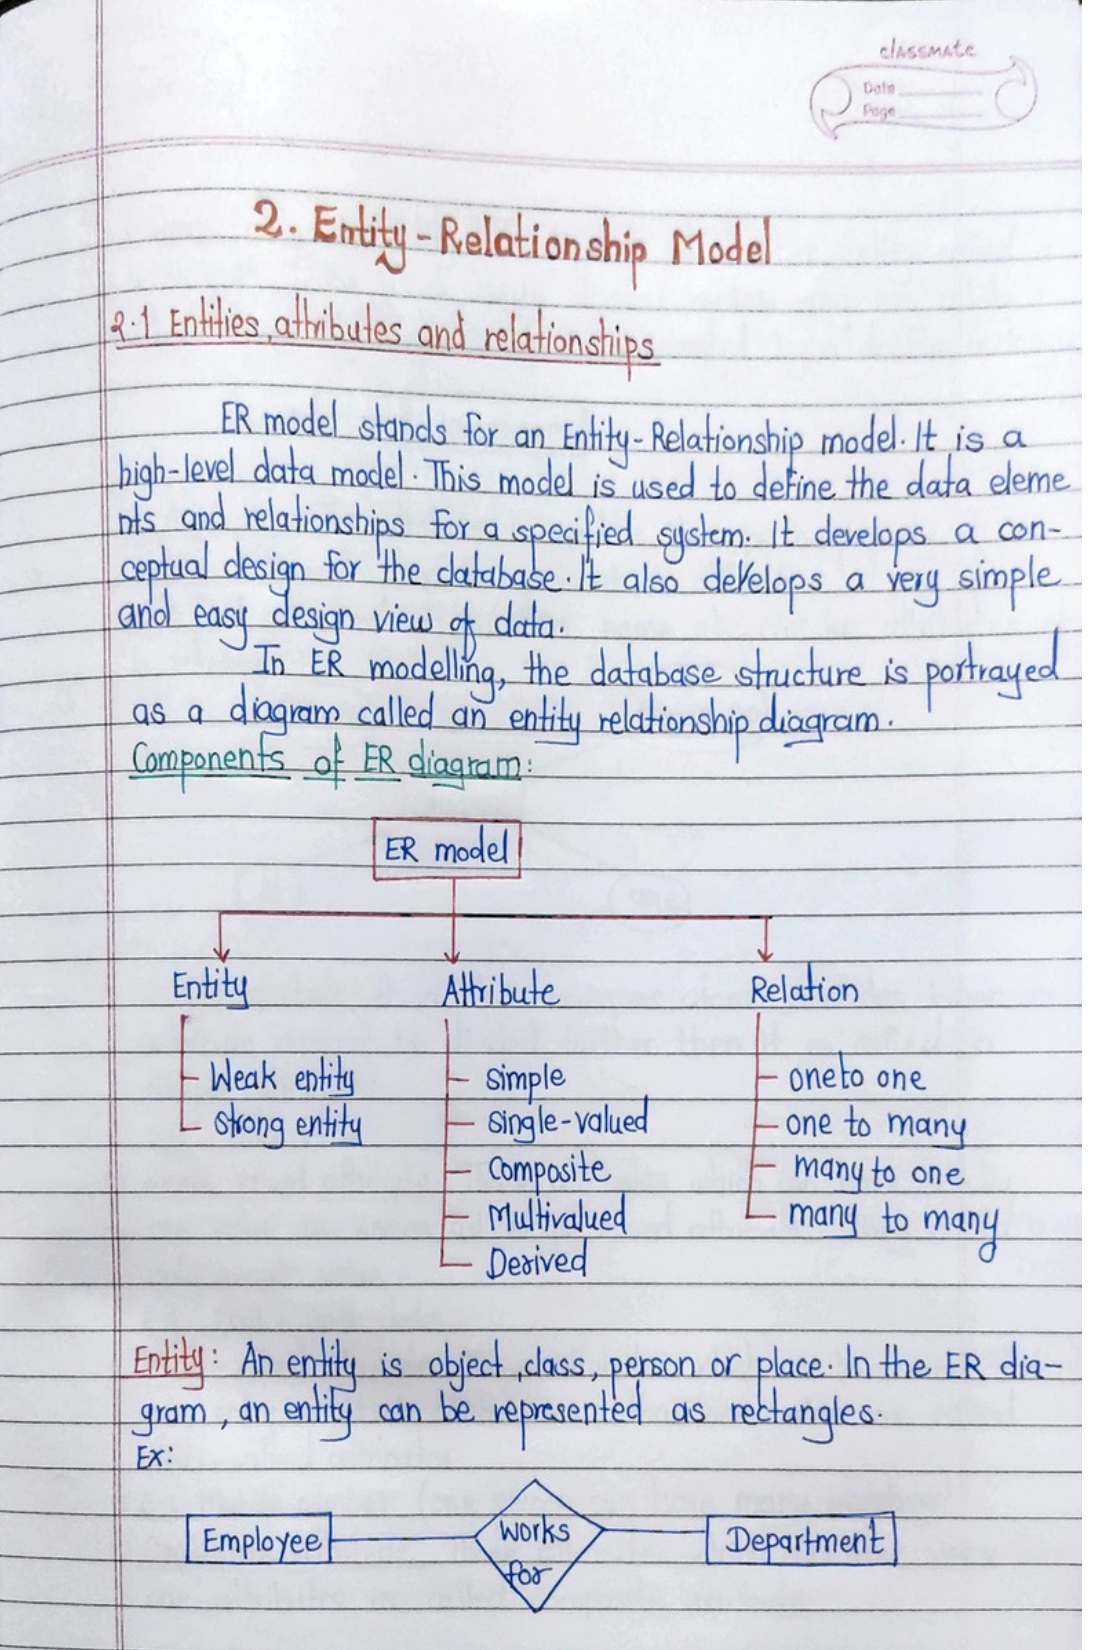 classmate
Date
Page
2. Entity-Relationship Model
2.1 Entities, attributes and relationships
ER model stands for an Entity-Relationship model. It is a
high-level data model. This model is used to define the data eleme
nts and relationships for a specified system. It develops a con-
ceptual design for the database. It also develops a very simple
and easy design view of data.
In ER modelling, the database structure is portrayed
as a diagram called an entity relationship diagram.
Components of ER diagram:
ER model
Entity Attribute Relation
Weak entity simple one to one
strong entity single-valued one to many
composite many to one
Multivalued many to many
Derived
Entity: An entity is object, class, person or place. In the ER dia-
gram, an entity can be represented as rectangles.
Ex:
Employee works for Department